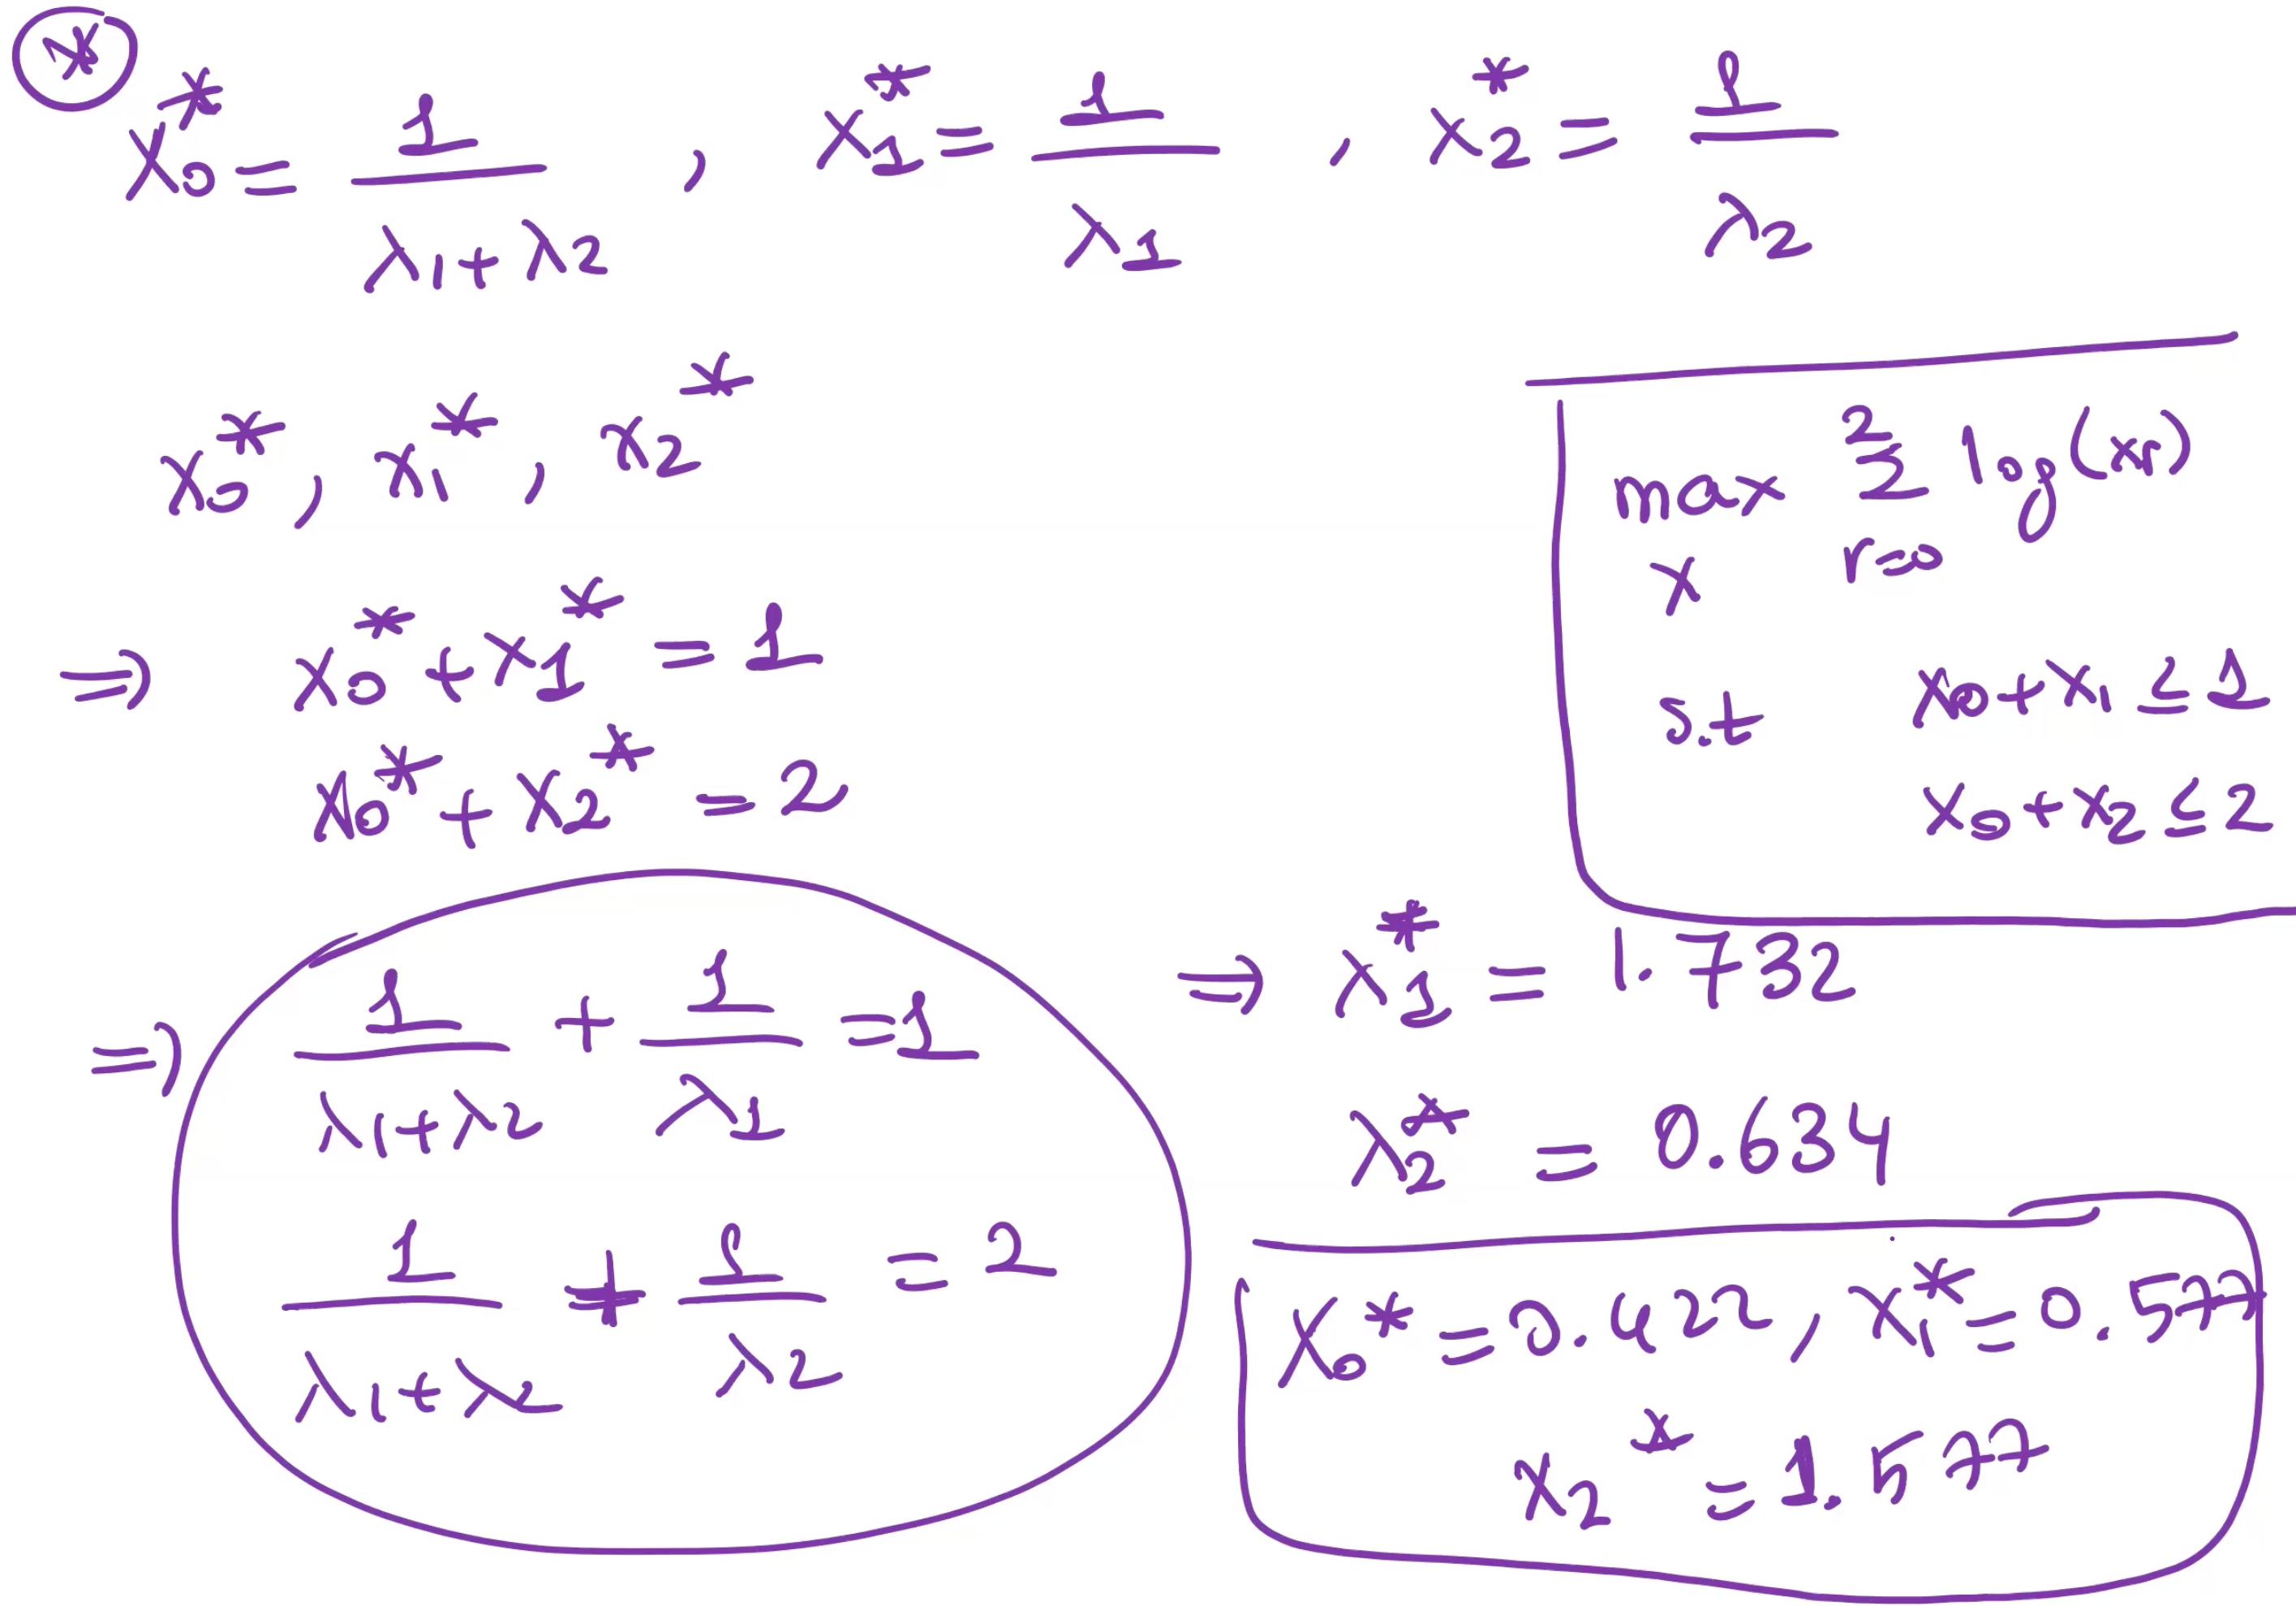 *
x₀* = 1/(λ₁+λ₂) , x₁* = 1/λ₁ , x₂* = 1/λ₂
x₀*, x₁*, x₂*
⇒ x₀* + x₁* = 1
x₀* + x₂* = 2
max Σ log(xr)
x r=0 2
s.t x₀+x₁ ≤ 1
x₀+x₂ ≤ 2
⇒ 1/(λ₁+λ₂) + 1/λ₁ = 1
1/(λ₁+λ₂) + 1/λ₂ = 2
⇒ λ₁* = 1.732
λ₂* = 0.634
x₀* = 0.422, x₁* = 0.577
x₂* = 1.577